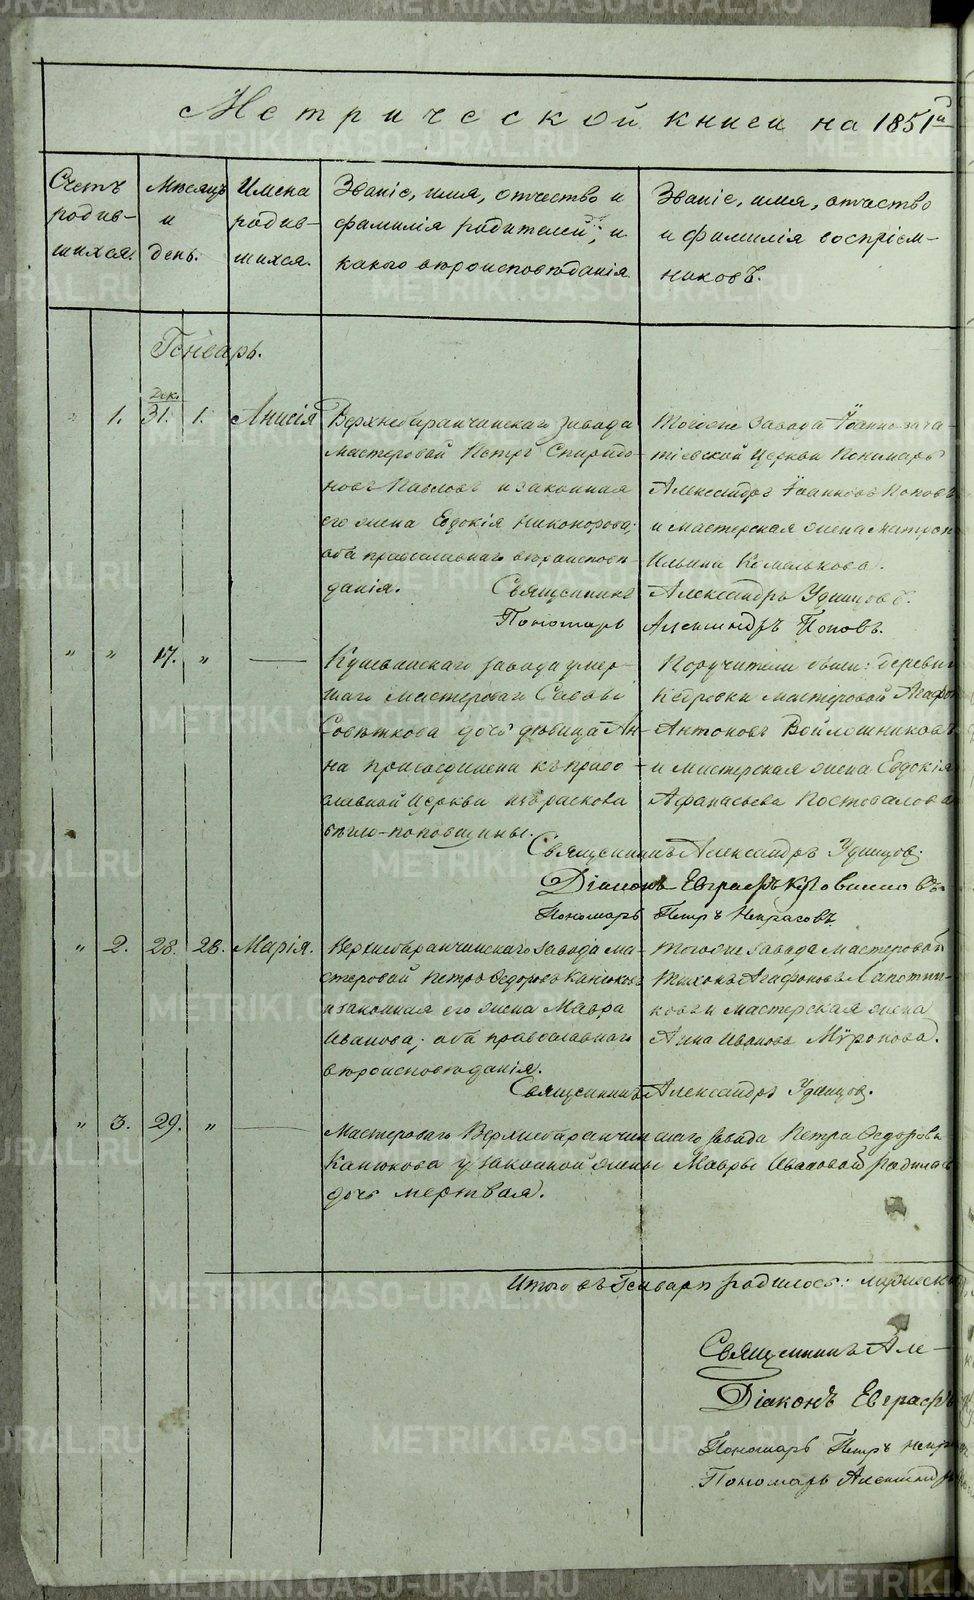 Метрической книги на 1851й
Счетъ родив-шихся.
Мѣсяцъ и день.
Имена родив-шихся.
Званіе, имя, отчество и
фамилія родителей, и
какого вѣроисповѣданія
Званіе, имя, отчество
и фамилія воспріем-
никовъ.
Генварь.
" 1. Дек. 31. 1. Анисія
Верхнебаранчинскаго завода
мастеровой Петръ Спиридо-
новъ Павловъ и законная
его жена Евдокія Никонорова;
оба православнаго вѣроисповѣ-
данія.
Тогоже завода Іоанно-зача-
тіевской Церкви Пономарь
Александръ Іоанновъ Поповъ
и мастерская жена Матрона
Ильина
Священникъ Александръ Удинцовъ.
Пономарь Александръ Поповъ.
" " 17. " —
Кушвинскаго завода умер-
шаго мастероваго Савы
дочь дѣвица Ан-
на присоединена къ право-
славной Церкви изъ раскола
бѣгло-поповщины.
Поручители были: деревни
Кедровки мастеровой Агафонъ
Антоновъ Войлошниковъ
и мастерская жена Евдокія
Афанасьева Постовалова
Священникъ Александръ Удинцовъ.
Діаконъ Евграфъ
Пономарь Петръ Некрасовъ
" 2. 28. 28. Марія.
Верхнебаранчинскаго завода ма-
стеровой Петръ Ѳедоровъ Канюковъ
и законная его жена Мавра
Иванова; оба православнаго
вѣроисповѣданія.
Тогоже завода мастеровой
Тихонъ Агафоновъ Лапотни-
ковъ и мастерская жена
Анна Иванова Мѵронова.
Священникъ Александръ Удинцовъ.
" 3. 29. " —
Мастероваго Верхнебаранчинскаго завода Петра Ѳедорова
Канюкова у законной жены Мавры Ивановой родилась
дочь мертвая.
Итого въ Генварѣ родилось: мужеск
Священникъ Але-
Діаконъ Евграфъ
Пономарь Петръ Некра
Пономарь Александръ
METRIKI.GASO-URAL.RU